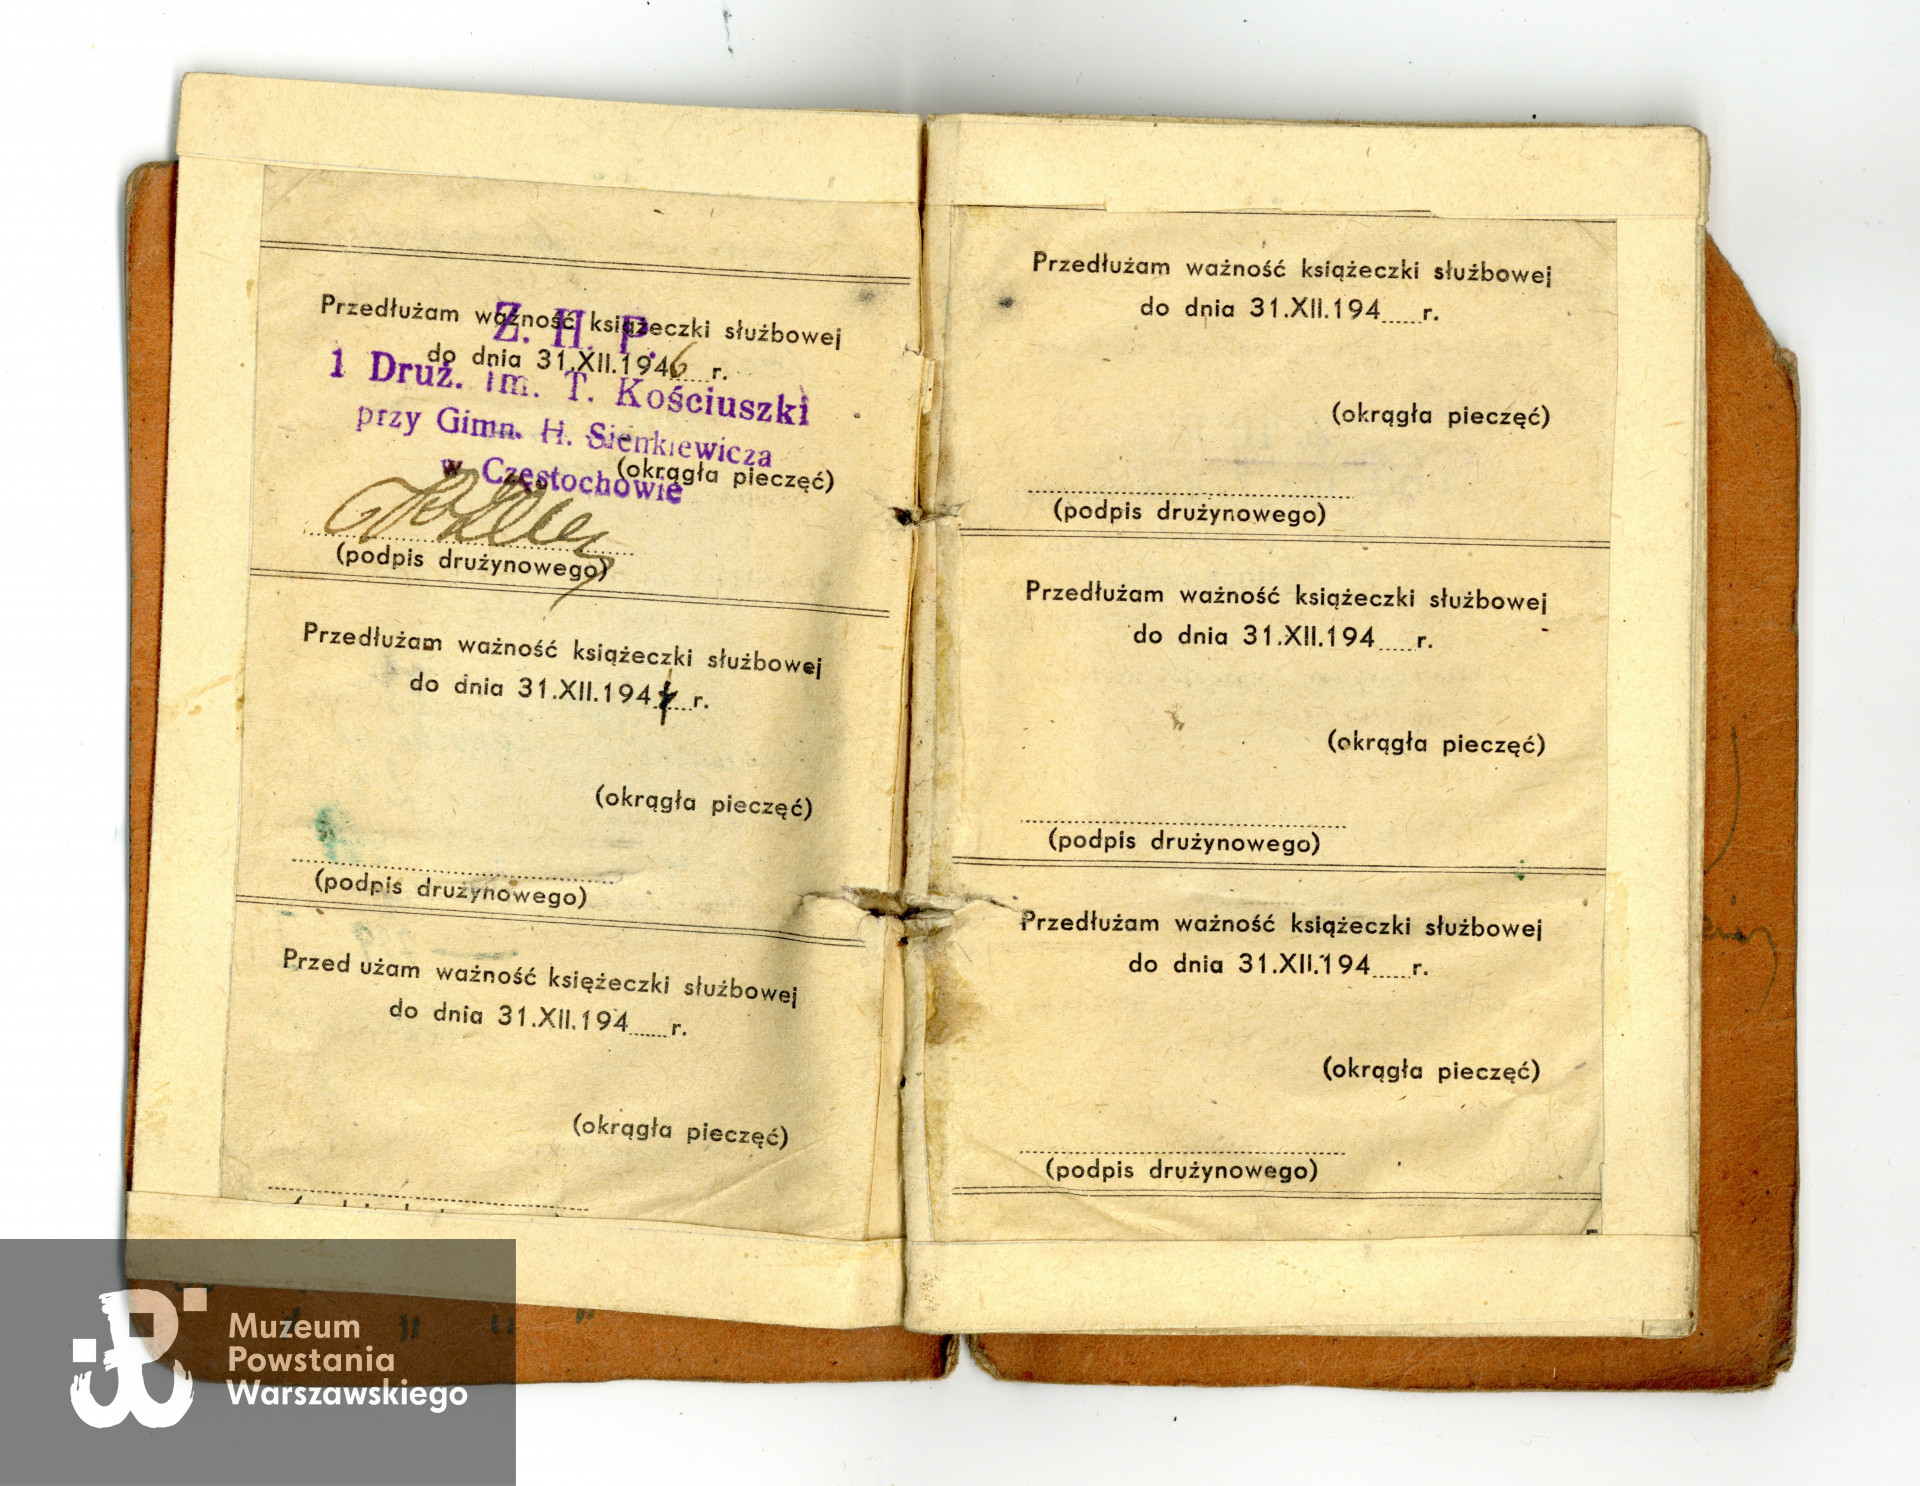 Przedłużam ważność książeczki służbowej
do dnia 31.XII.1946 r.
Z. H. P.
1 Druż. im. T. Kościuszki
przy Gimn. H. Sienkiewicza
w Częstochowie
(okrągła pieczęć)
(podpis drużynowego)
Przedłużam ważność książeczki służbowej
do dnia 31.XII.1947 r.
(okrągła pieczęć)
(podpis drużynowego)
Przed użam ważność księżeczki służbowej
do dnia 31.XII.194 r.
(okrągła pieczęć)
Przedłużam ważność książeczki służbowej
do dnia 31.XII.194 r.
(okrągła pieczęć)
(podpis drużynowego)
Przedłużam ważność książeczki służbowej
do dnia 31.XII.194 r.
(okrągła pieczęć)
(podpis drużynowego)
Przedłużam ważność książeczki służbowej
do dnia 31.XII.194 r.
(okrągła pieczęć)
(podpis drużynowego)
Muzeum
Powstania
Warszawskiego